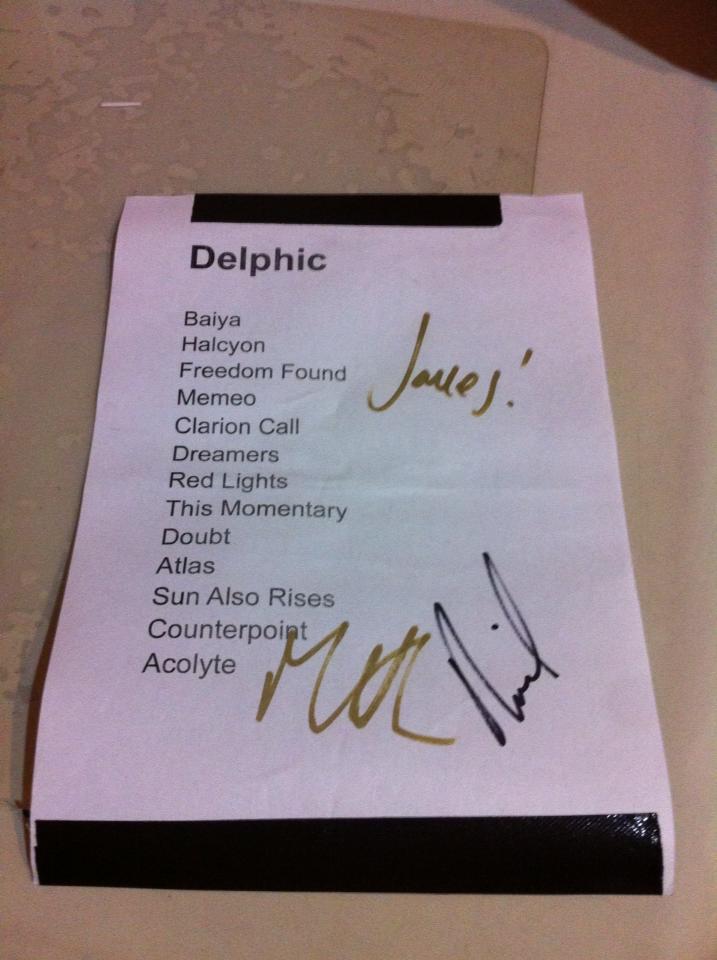 Delphic
Baiya
Halcyon
Freedom Found
Memeo
Clarion Call
Dreamers
Red Lights
This Momentary
Doubt
Atlas
Sun Also Rises
Counterpoint
Acolyte
James!
Matt